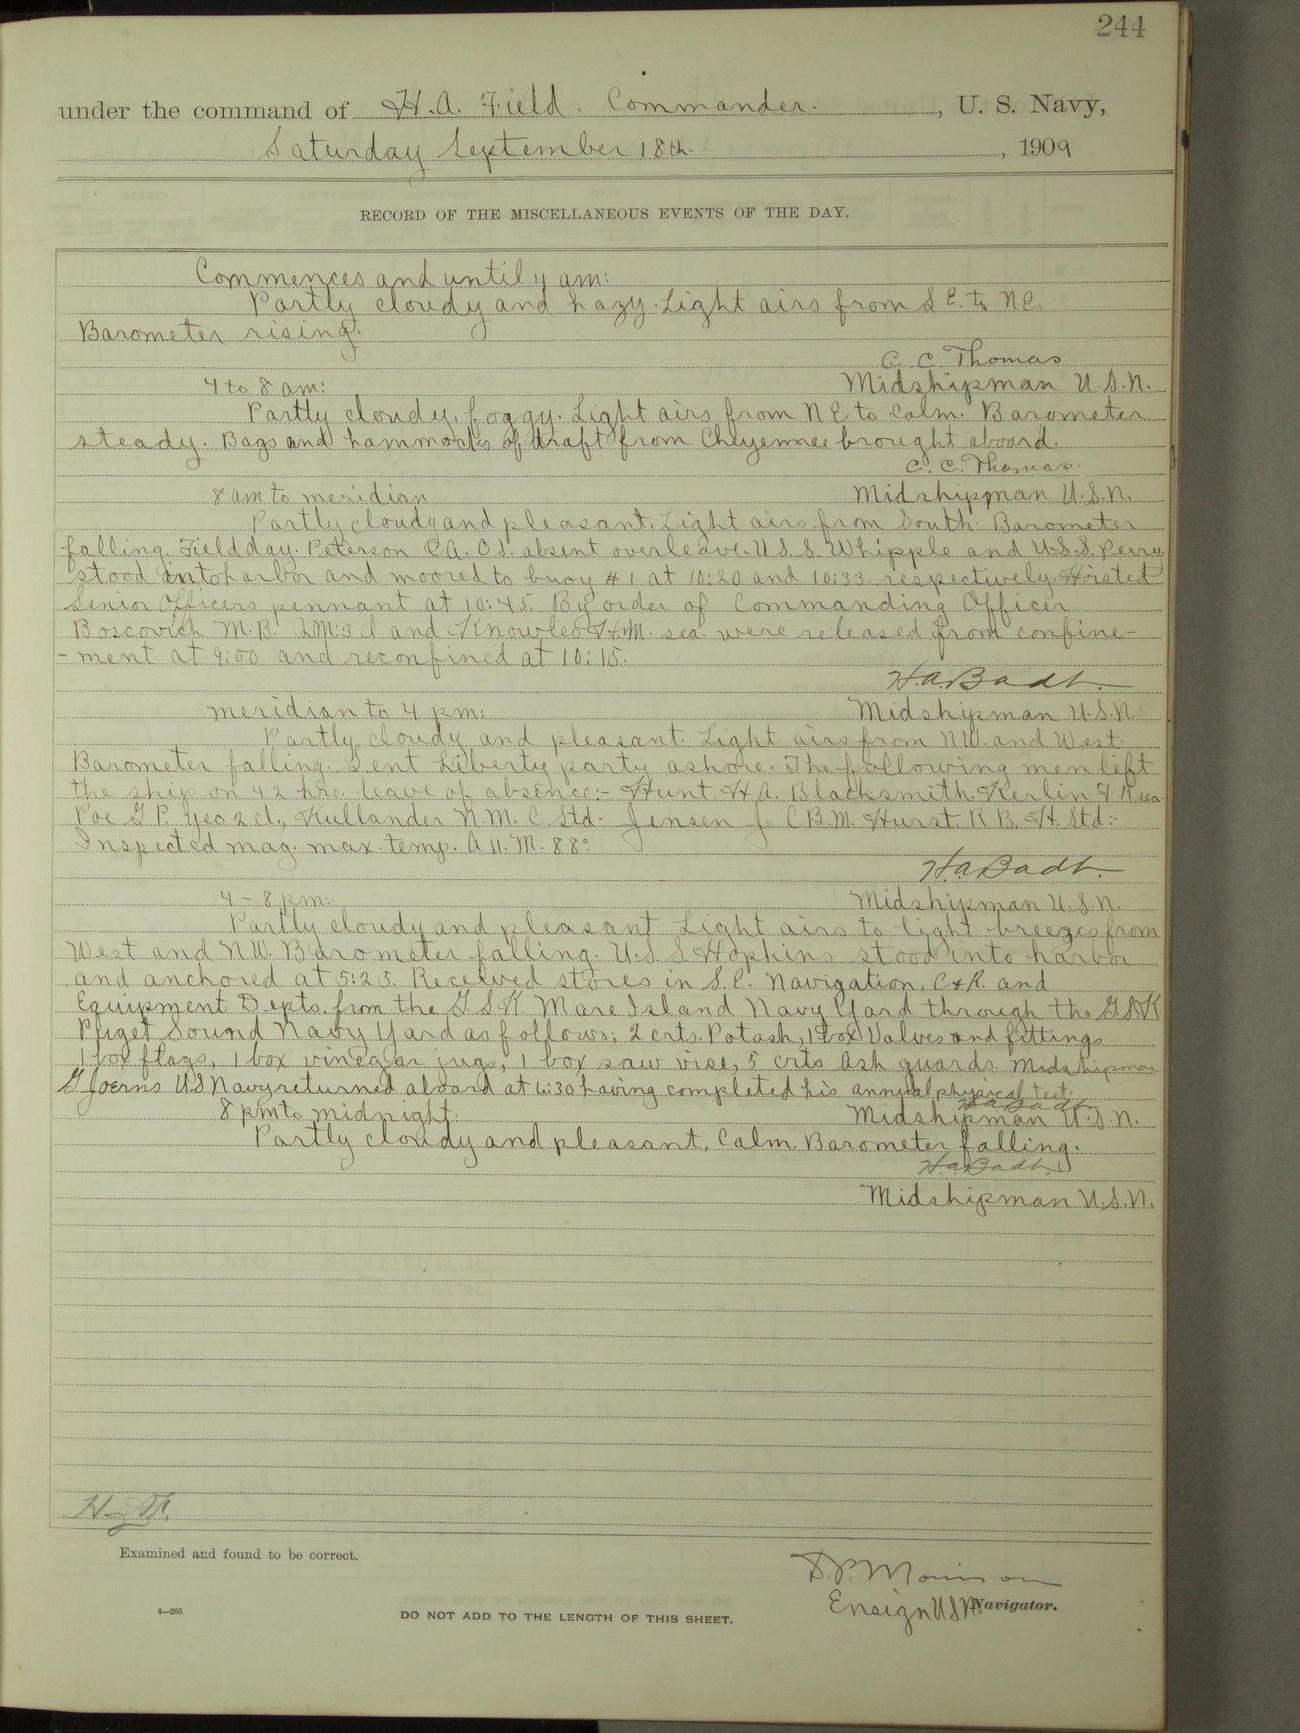 244
under the command of H. A. Field. Commander. , U. S. Navy,
Saturday September 18th , 1909
RECORD OF THE MISCELLANEOUS EVENTS OF THE DAY.
Commences and until 4 am:
Partly cloudy and hazy. Light airs from S E. to N E.
Barometer rising.
C. C. Thomas
4 to 8 am:
Midshipman U.S.N.
Partly cloudy, foggy. Light airs from N E to calm. Barometer
steady. Bags and hammocks of draft from Cheyenne brought aboard.
C. C. Thomas.
8 am to meridian
Midshipman U.S.N.
Partly cloudy and pleasant. Light airs from South. Barometer
falling. Field day. Peterson C.A. O.S. absent overleave. U.S.S. Whipple and U.S.S. Perry
stood into harbor and moored to buoy # 1 at 10:20 and 10:33 respectively. Hoisted
Senior Officers pennant at 10:45. By order of Commanding Officer
Boscovich M.B. and Knowles H.M. sea. were released from confine-
-ment at 9:00 and reconfined at 10:15.
H.A. Badt.
meridian to 4 pm:
Midshipman U.S.N.
Partly cloudy and pleasant. Light airs from NW. and West.
Barometer falling. Sent liberty party ashore. The following men left
the ship on 42 hrs. leave of absence:- Hunt, H.A. Blacksmith. Kerlin sea
Poe G P. Yeo 2 cl., Kullander N M. C Std. Jensen J. C B M. Hurst, R B. H. Std:-
Inspected mag. max. temp. A 11. M. 88°
H.A. Badt.
4 - 8 pm:
Midshipman U.S.N.
Partly cloudy and pleasant Light airs to light breezes from
West and NW. Barometer falling. U.S.S Hopkins stood into harbor
and anchored at 5:25. Received stores in S.E. Navigation, C & R. and
Equipment Depts. from the G S K Mare Island Navy Yard through the G S K
Puget Sound Navy Yard as follows; 2 crts. Potash, 1 box Valves and fittings
1 box flags, 1 box vinegar jugs, 1 box saw vise, 5 crts Ash guards. Midshipman
G Joerns U S Navy returned aboard at 6:30 having completed his annual physical test.
H.A. Badt.
8 pm to midnight.
Midshipman U.S.N.
Partly cloudy and pleasant, Calm. Barometer falling.
H.A. Badt.
Midshipman U.S.N.
Examined and found to be correct.
D.P. Morrison
Ensign U S N. Navigator.
4—265
DO NOT ADD TO THE LENGTH OF THIS SHEET.